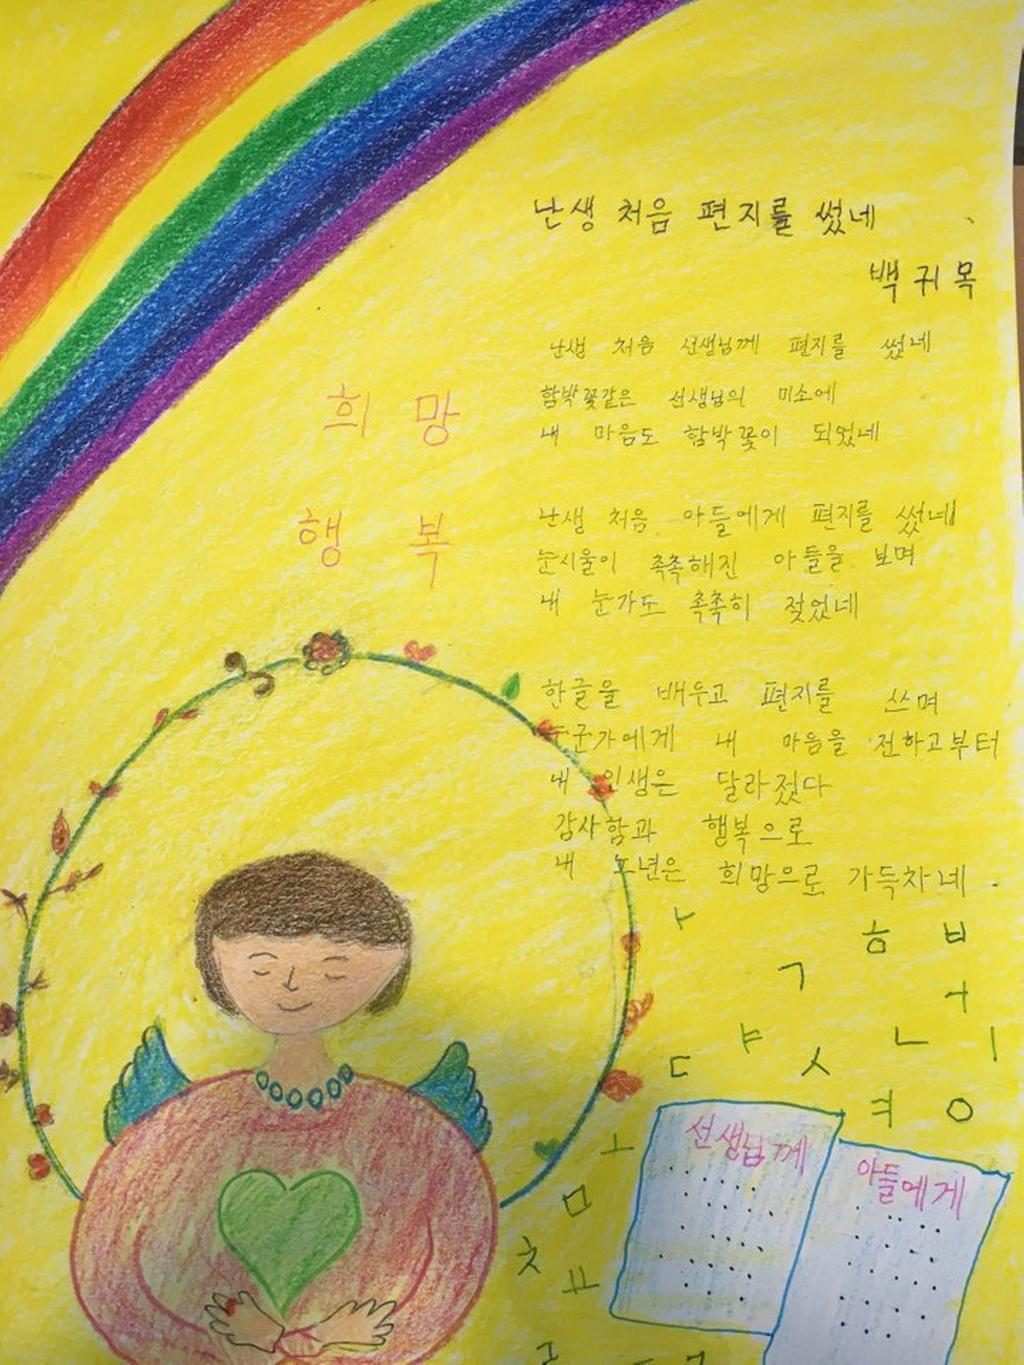 난생 처음 편지를 썼네
백귀목
난생 처음 선생님께 편지를 썼네
함박꽃같은 선생님의 미소에
내 마음도 함박꽃이 되었네
난생 처음 아들에게 편지를 썼네
눈시울이 촉촉해진 아들을 보며
내 눈가도 촉촉히 젖었네
한글을 배우고 편지를 쓰며
누군가에게 내 마음을 전하고부터
내 인생은 달라졌다
감사함과 행복으로
내 노년은 희망으로 가득차네.
희망
행복
ㅏ ㅎ ㅂ
ㄱ ㅓ
ㅑ ㄴ ㅣ
ㄷ ㅅ
ㅋ ㅇ
ㅗ
ㅁ
ㅊ ㅛ
선생님께
아들에게